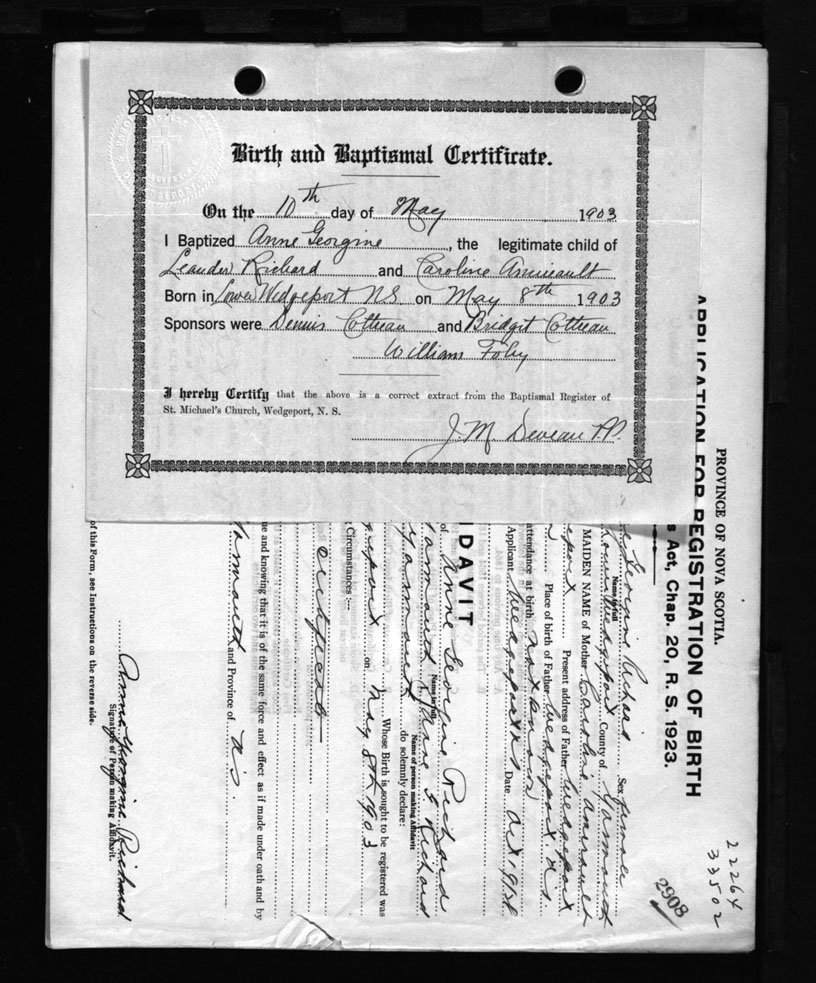 Birth and Baptismal Certificate.
On the 10th day of May 1903
I Baptized Anne Georgine, the legitimate child of
Leander Richard and Caroline Amirault
Born in Lower Wedgeport NS on May 8th 1903
Sponsors were Dennis Cottreau and Bridget Cottreau
William Foley
I hereby Certify that the above is a correct extract from the Baptismal Register of
St. Michael's Church, Wedgeport, N. S.
J. M. Deveau P.P.
PROVINCE OF NOVA SCOTIA.
APPLICATION FOR REGISTRATION OF BIRTH
s Act, Chap. 20, R. S. 1923.
Georgine Richard Sex female
Name in full
Lower Wedgeport County of Yarmouth
MAIDEN NAME of Mother Caroline Amirault
eport Present address of Father Wedgeport
Place of birth of Father Wedgeport. N.S.
attendance at birth not known
Applicant Wedgeport N.S. Date Oct
IDAVIT
of Anne Georgine Richard
Name in full
Yarmouth I, Anne G. Richard
Name of person making Affidavit
Yarmouth do solemnly declare:
Whose Birth is sought to be registered was
geport on May 8th 1903
Circumstances:—
certificate
ue and knowing that it is of the same force and effect as if made under oath and by
Yarmouth and Province of N.S.
Anne Georgine Richard
Signature of Person making Affidavit.
of this Form, see Instructions on the reverse side.
22264
33502
2908